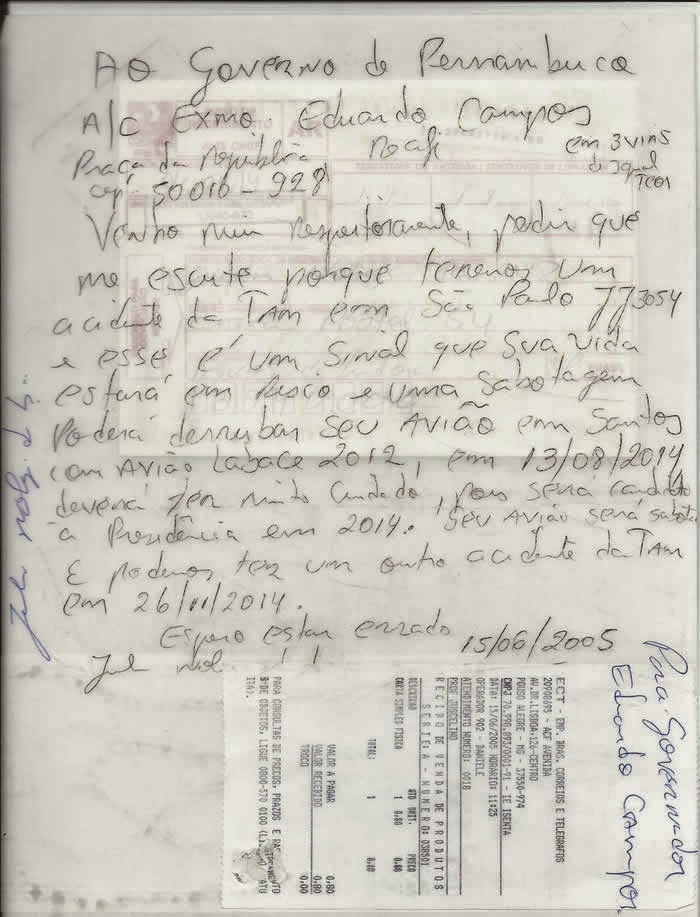 AO Governo de Pernambuco
A/C Exmo. Eduardo Campos
Praça da República, Recife
em 3 vias
de Igual
TEOR
cep: 50010-928
Venho mui respeitosamente, pedir que
me escute porque teremos um
acidente da TAM em São Paulo JJ3054
e esses é um sinal que sua vida
estará em risco e uma sabotagem
poderá derrubar seu Avião em Santos
com Avião Labace 2012, em 13/08/2014
deverá ter muito cuidado, pois será candidato
à Presidência em 2014. Seu Avião será
E podemos ter um outro acidente da TAM
em 26/11/2014.
Espero estar errado 15/06/2005
Para Governador
Eduardo Campos
ECT - EMP. BRAS. CORREIOS E TELEGRAFOS
20900695 - ACF AVENIDA
AV.DR.LISBOA,126-CENTRO
POUSO ALEGRE - MG - 37550-974
CNPJ 70.990.893/0001-91 - IE ISENTA
DATA: 15/06/2005 HORARIO: 11:25
OPERADOR 902 - DANIELE
ATENDIMENTO NUMERO: 0018
PROF JUSCELINO
RECIBO DE VENDA DE PRODUTOS
SERIE: A - NUMERO: 038501
DESCRICAO QTD UNIT. PRECO
CARTA SIMPLES FISICA 1 0.80 0.80
TOTAL: 1 0.80
VALOR A PAGAR 0,80
VALOR RECEBIDO 0,80
TROCO 0,00
PARA CONSULTAS DE PRECOS, PRAZOS E
S DE OBJETOS, LIGUE 0800-570 0100
ITA).